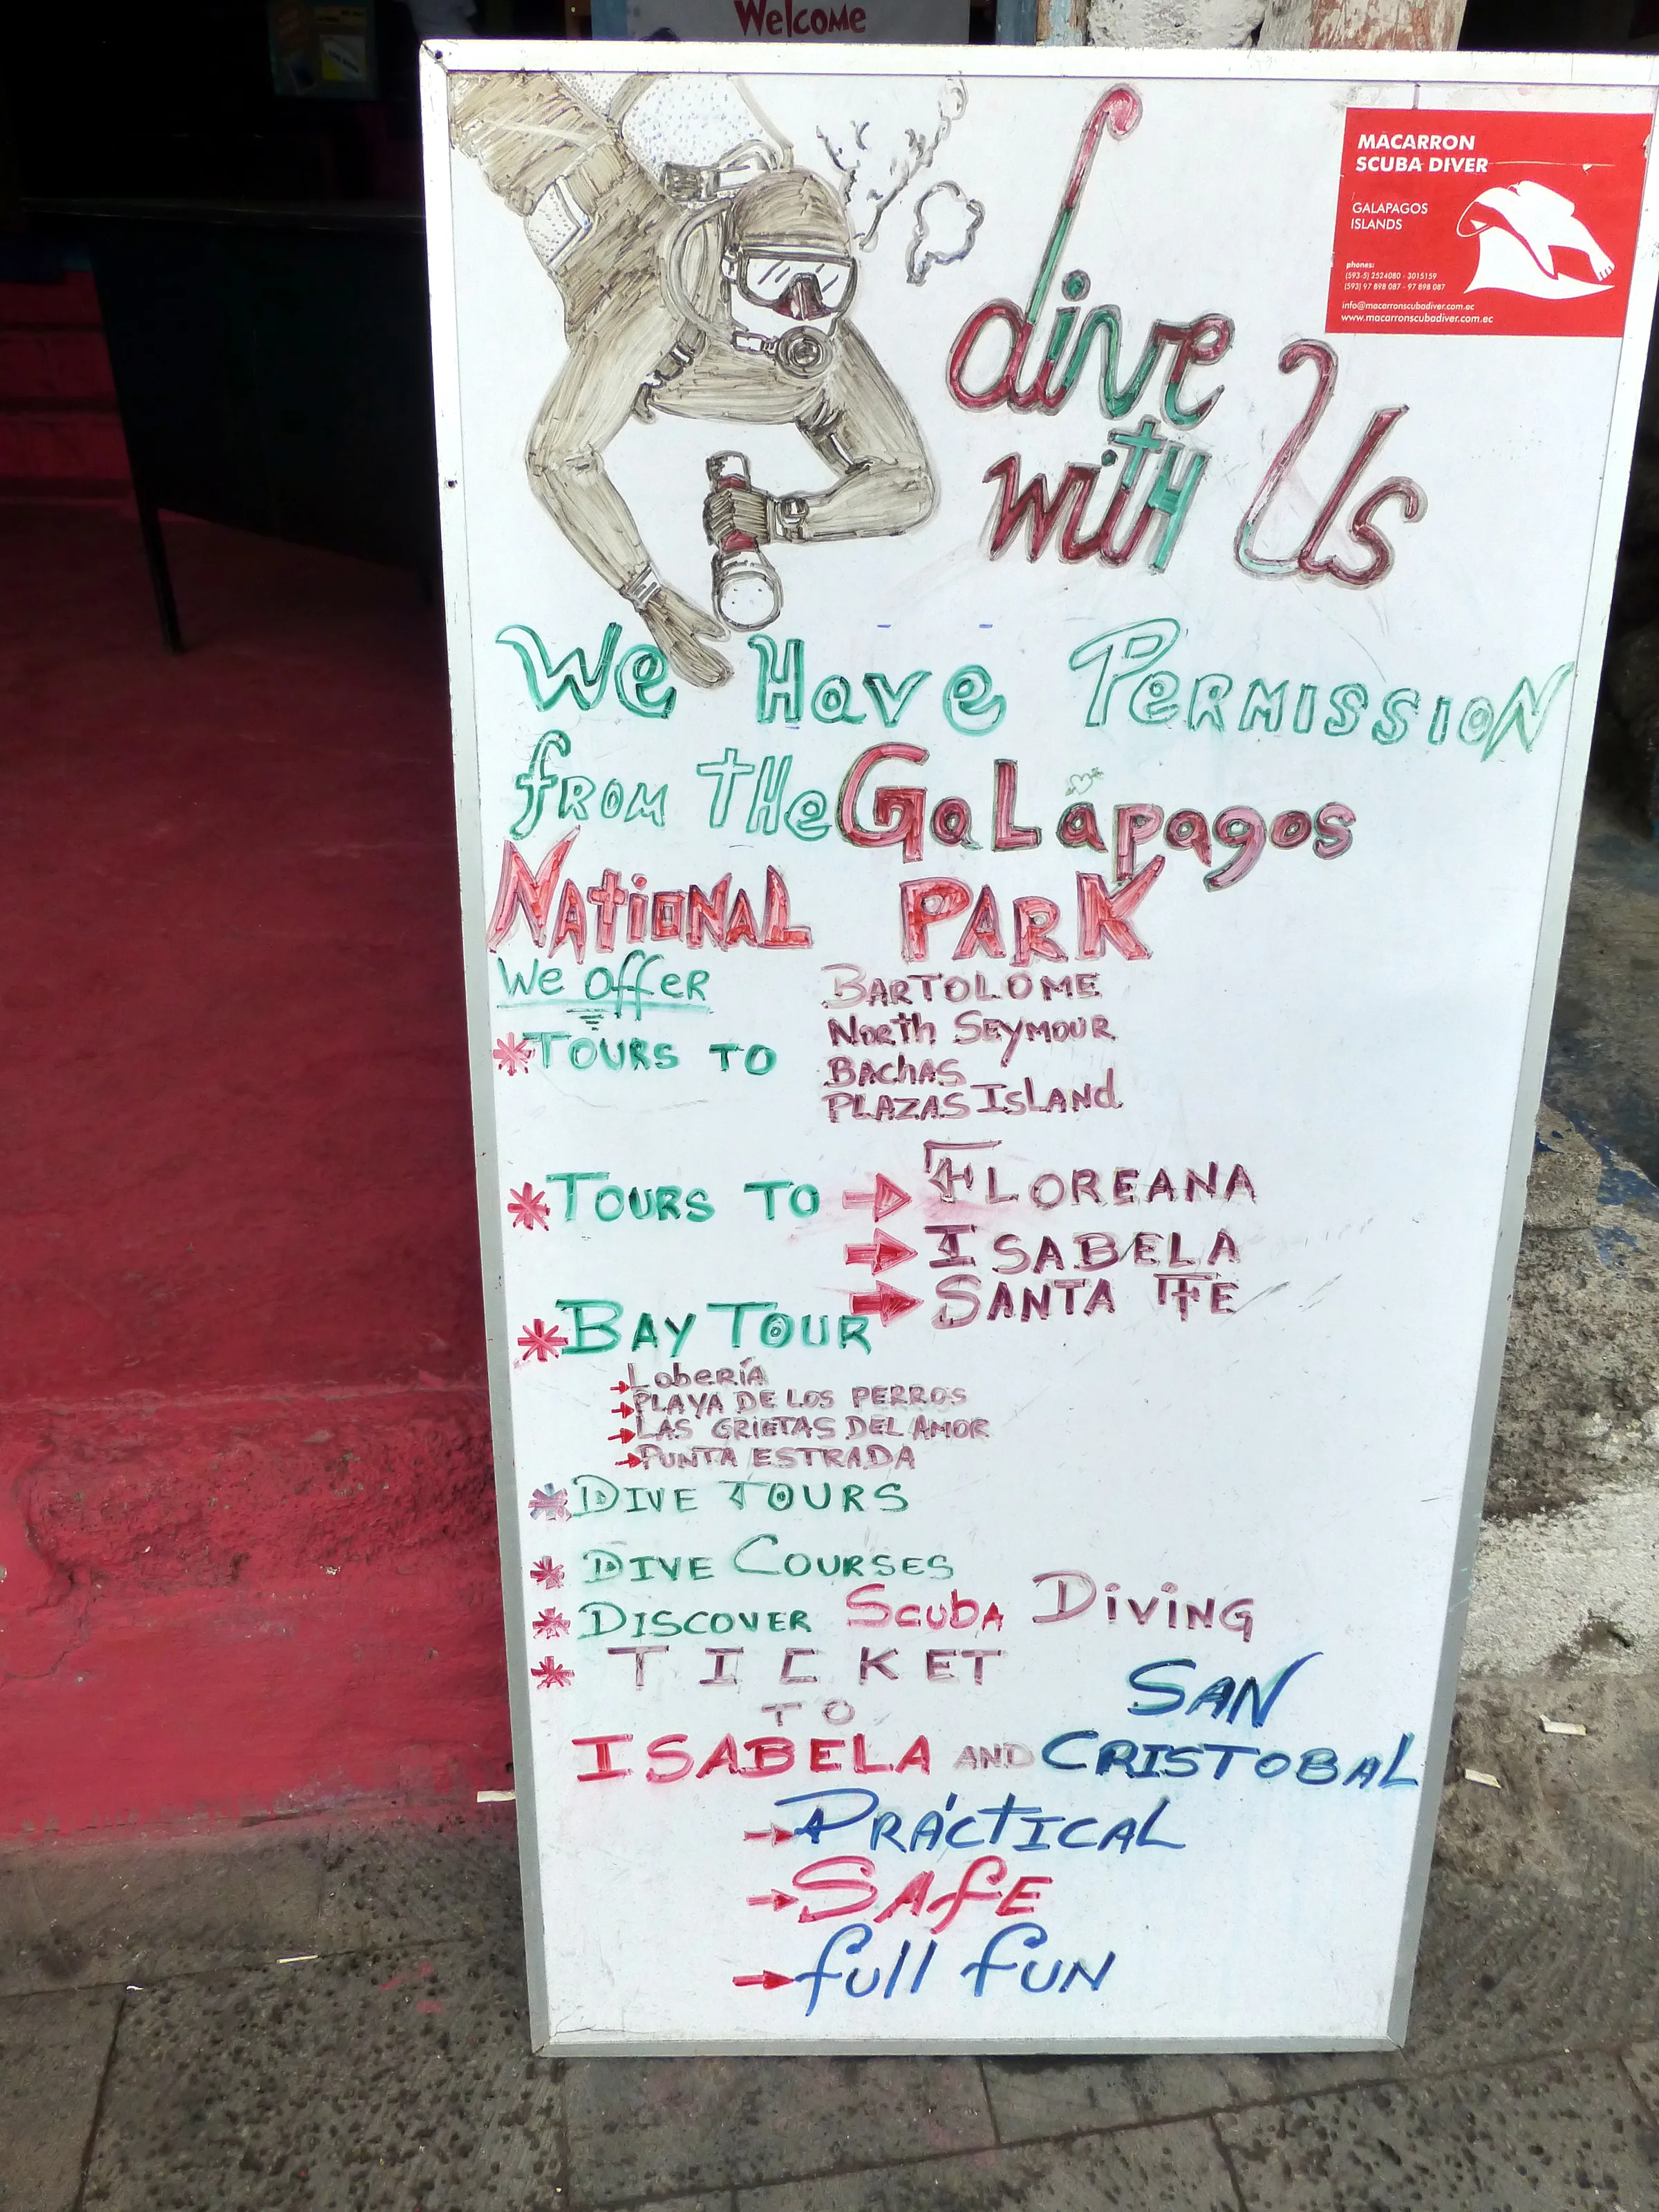 Welcome
MACARRON
SCUBA DIVER
GALAPAGOS
ISLANDS
phones:
(593-5) 2524080 - 3015159
(593) 97 898 087 - 97 898 087
info@macarronscubadiver.com.ec
www.macarronscubadiver.com.ec
dive
with Us
We Have PERMISSION
from THe GaLapagos
NAtiONAL PARK
We offer
*TOURS TO
BARTOLOME
North SEYMOUR
BAChAS
PLAZAS ISLANd
*TOURS TO → FLOREANA
→ ISABELA
→ SANTA FE
*BAY TOUR
→ LobeRíA
→ PLAYA DE LOS PERROS
→ LAS GRIETAS DEL AMOR
→ PUNTA ESTRADA
*DIVE TOURS
* DIVE COURSES
* DISCOVER ScubA DiViNG
* TICKET
TO
ISABELA AND SAN CRISTOBAL
→ PRÁCTICAL
→ SAfE
→ full fUN